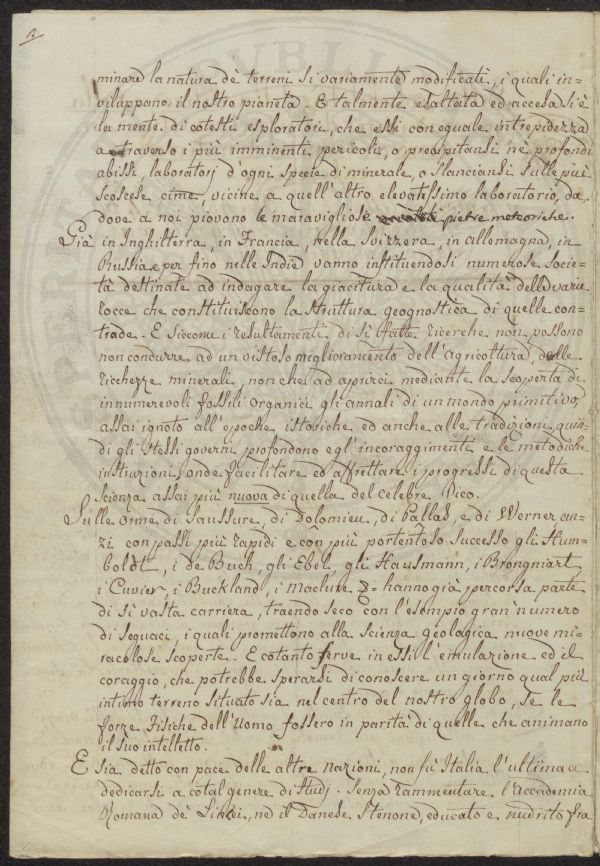 2
minare la natura de' terreni si variamente modificati, i quali in-
viluppano il nostro pianeta. E talmente esaltata ed accesa si è
la mente di cotesti esploratori, che essi con eguale intrepidezza
a traverso i più imminenti pericoli, o precipitansi nè profondi
abissi, laboratorj d'ogni specie di minerale, o slanciansi sulle più
scoscese cime, vicine a quell'altro elevatissimo laboratorio, da
dove a noi piovono le maravigliose pietre meteoriche.
Già in Inghilterra, in Francia, nella Svizzera, in allemagna, in
Russia e per fino nelle Indie vanno instituendosi numerose Socie-
tà destinate ad indagare la giacitura e la qualità delle varie
rocce che constituiscono la struttura geognostica di quelle con-
trade. E siccome i resultamenti di sì fatte ricerche non possono
non condurre ad un vistoso miglioramento dell'agricoltura, delle
ricchezze minerali, non che ad aprirci mediante la scoperta di
innumerevoli fossili organici gli annali di un mondo primitivo,
assai ignoto all'epoche istoriche ed anche alle tradizioni, quin-
di gli stessi governi profondono egl'incoraggimenti e le metodiche
instruzioni, onde facilitare ed affrettare i progressi di questa
Scienza assai più nuova di quella del celebre Vico.
Sulle orme di Saussure, di Dolomieu, di Pallas, e di Werner, an-
zi con passi più rapidi e con più portentoso successo gli Hum-
boldt, i de Buch, gli Ebel, gli Hausmann, i Brongniart
i Cuvier, i Buckland, i Maclure &= hanno già percorsa parte
di sì vasta carriera, traendo seco con l'esempio gran numero
di seguaci, i quali promettono alla scienza geologica nuove mi-
racolose scoperte. E cotanto ferve in essi l'emulazione ed il
coraggio, che potrebbe sperarsi di conoscere un giorno qual più
intimo terreno situato sia nel centro del nostro globo, se le
forze Fisiche dell'Uomo fossero in parità di quelle che animano
il suo intelletto.
E sia detto con pace delle altre nazioni, non fù Italia l'ultima a
dedicarsi a cotal genere di studj. Senza rammentare l'Accademia
Romana de' Lincei, nè il Danese Stenone, educato e nudrito fra